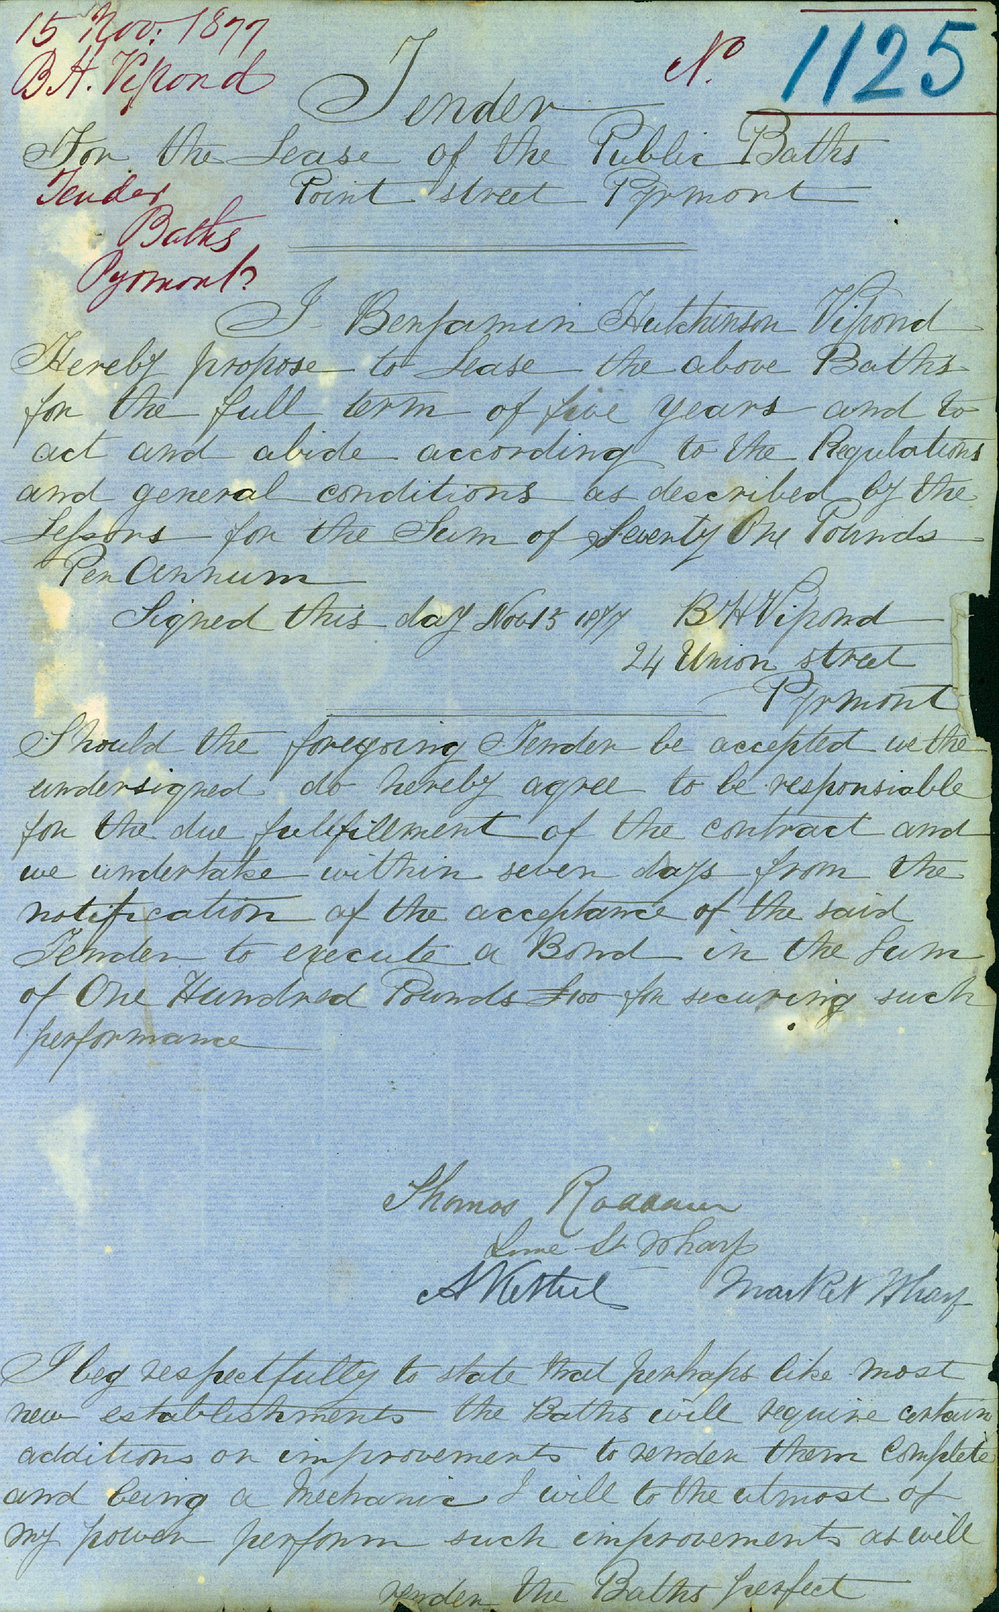 15 Nov: 1877
B. H. Vipond
No. 1125
Tender
For the Lease of the Public Baths
Point street Pyrmont
Tender
Baths
Pyrmont
I Benjamin Hutchinson Vipond
Hereby propose to Lease the above Baths
for the full term of five years and to
act and abide according to the Regulations
and general conditions as described by the
Lessors for the Sum of Seventy One Pounds
Per Annum
Signed this day Nov 15 1877 B H Vipond
24 Union street
Pyrmont
Should the foregoing Tender be accepted we the
undersigned do hereby agree to be responsiable
for the due fullfillment of the contract and
we undertake within seven days from the
notification of the acceptance of the said
Tender to execute a Bond in the Sum
of One Hundred Pounds £100 for securing such
performance
Thomas
Lime St Wharf
Market Wharf
I beg respectfully to state that perhaps like most
new establishments the Baths will require certain
additions or improvements to render them Complete
and being a Mechanic I will to the utmost of
my power perform such improvements as will
render the Baths perfect